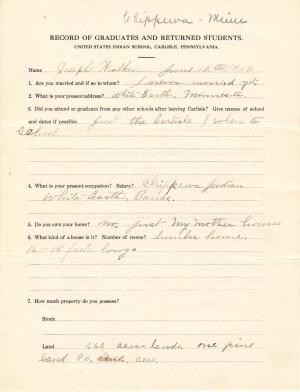 Chippewa - Minn
RECORD OF GRADUATES AND RETURNED STUDENTS.
UNITED STATES INDIAN SCHOOL, CARLISLE, PENNSYLVANIA.
Name Joseph Walker June 18
1. Are you married and if so to whom? I never married yet.
2. What is your present address? White Earth, Minnesota.
3. Did you attend or graduate from any other schools after leaving Carlisle? Give names of school
and dates if possible Just the Carlisle I where to
School
4. What is your present occupation? Salary? Chippewa Indian
White Earth, Bands.
5. Do you own your home? no, just My Mother house
6. What kind of a house is it? Number of rooms? lumber house.
16-18 feet longs
7. How much property do you possess?
Stock
Land 160 acres lands. one pine
land 80. acr.